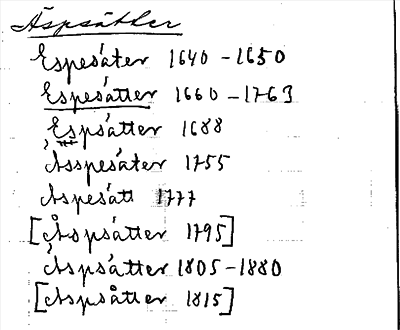 Äspsätter
Espesáter 1640-1650
Espesátter 1660-1763
Espsátter 1688
Àsspesáter 1755
Aspesátt 1777
[Åspsátter 1795]
Àspsátter 1805-1880
[Aspsåtter 1815]